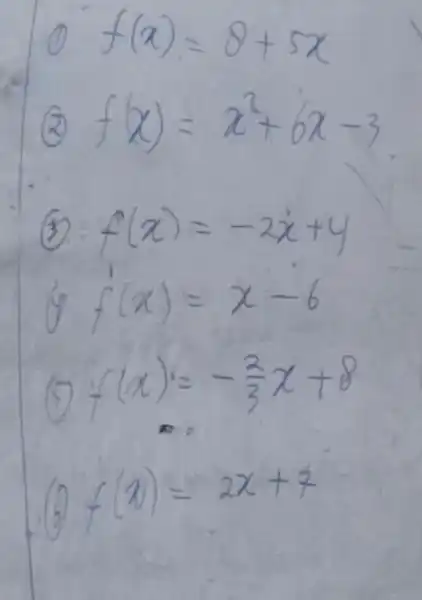 ① f(x) = 8 + 5x
② f(x) = x² + 6x - 3
③ f(x) = -2x + 4
④ f(x) = x - 6
⑤ f(x) = -2/3 x + 8
⑥ f(x) = 2x + 7